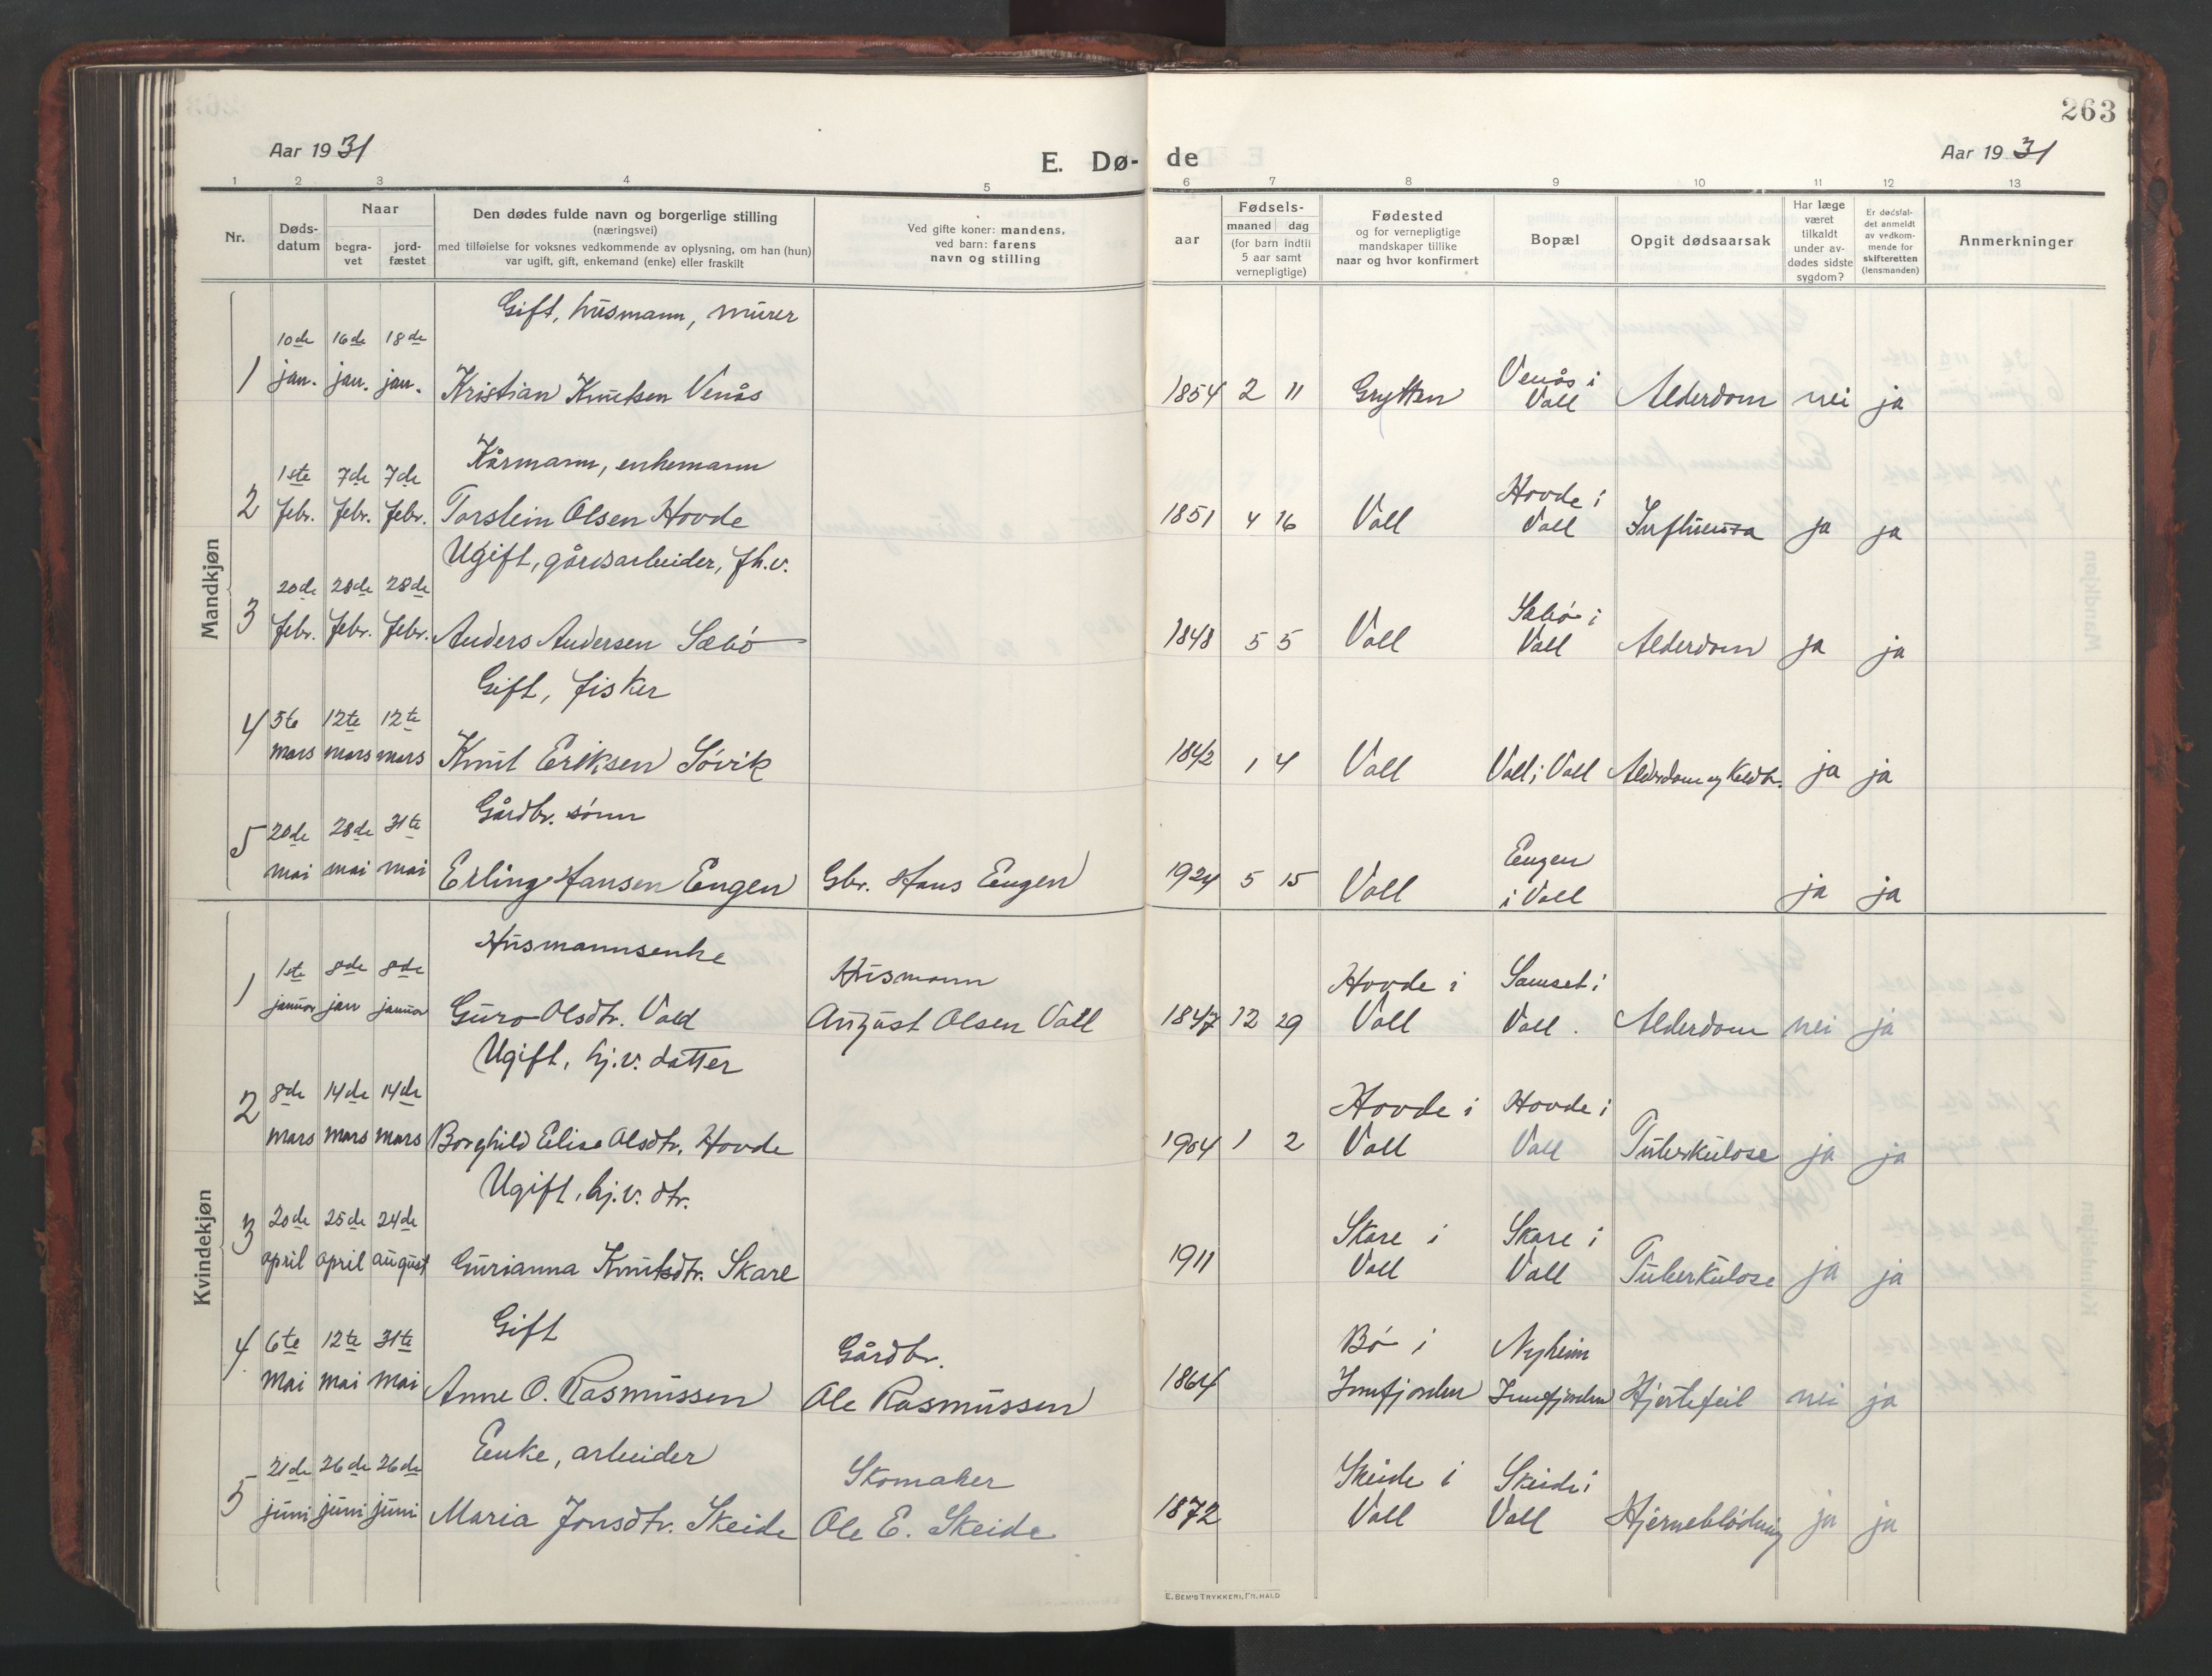 263
Aar 1931
E. Dø-
de
Aar 1931
1 2 3 4 5 6 7 8 9 10 11 12 13
Nr.
Døds-
datum
Naar
begra-
vet
jord-
fæstet
Den dødes fulde navn og borgerlige stilling
(næringsvei)
med tilføielse for voksnes vedkommende av oplysning, om han (hun)
var ugift, gift, enkemand (enke) eller fraskilt
Ved gifte koner: mandens,
ved barn: farens
navn og stilling
aar
Fødsels-
maaned dag
(for barn indtil
5 aar samt
vernepligtige)
Fødested
og for vernepligtige
mandskaper tillike
naar og hvor konfirmert
Bopæl
Opgit dødsaarsak
Har læge
været
tilkaldt
under av-
dødes sidste
sygdom?
Er dødsfal-
det anmeldt
av vedkom-
mende for
skifteretten
(lensmanden)
Anmerkninger
Mandkjøn
Gift, husmann, murer
10de 16de 18de
1 jan. jan. jan. Kristian Knutsen Venås 1854 2 11 Grytten Venås i
Voll Alderdom nei ja
Kårmann, enkemann
1ste 7de 7de
2 febr. febr. febr. Torstein Olsen Hovde 1851 4 16 Voll Hovde i
Voll Influensa ja ja
Ugift, gårdsarbeider, fh.v.
20de 28de 28de
3 febr. febr. febr. Anders Andersen Sæbö 1848 5 5 Voll Sæbö i
Voll Alderdom ja ja
Gift, fisker
4 5te 12te 12te
mars mars mars Knut Eriksen Sövik 1842 1 4 Voll Voll i Voll Alderdom og Koldbr. ja ja
Gårdbr. sönn
5 20de 28de 31te
mai mai mai Erling Hansen Engen Gbr. Hans Engen 1924 5 15 Voll Engen
i Voll ja ja
Kvindekjøn
Husmannsenke Husmann
1 1ste 8de 8de
januar jan januar Guro Olsdtr. Voll August Olsen Voll 1847 12 29 Hovde i
Voll Samset i
Voll. Alderdom nei ja
Ugift, hj.v. datter
2 8de 14de 14de
mars mars mars Borghild Elise Olsdtr. Hovde 1904 1 2 Hovde i
Voll Hovde i
Voll Tuberkulose ja ja
Ugift, hj.v. dtr.
3 20de 25de 24de
april april august Gurianna Knutsdtr. Skare 1911 Skare i
Voll Skare i
Voll Tuberkulose ja ja
Gift Gårdbr.
4 6te 12te 31te
mai mai mai Anne O. Rasmussen Ole Rasmussen 1864 Bö i
Innfjorden Nyheim
Innfjorden Hjertefeil nei ja
Enke, arbeider Skomaker
5 21de 26de 26de
juni juni juni Maria Jonsdtr. Skeide Ole E. Skeide 1872 Skeide i
Voll Skeide i
Voll Hjerneblödning ja ja
E. SEM'S TRYKKERI, FR. HALD